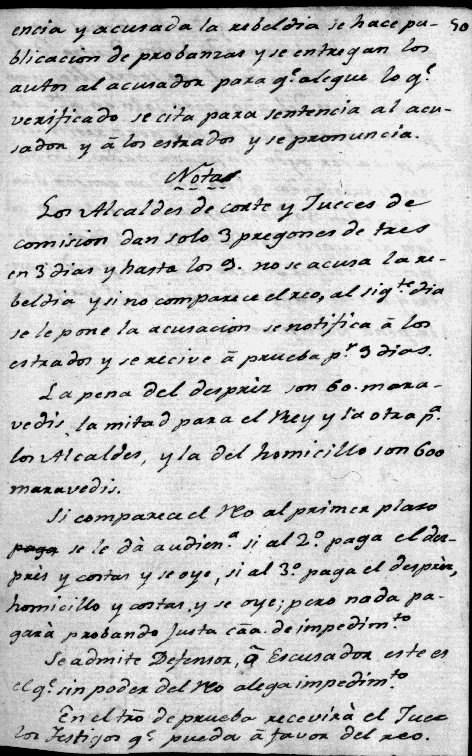 encia y acusada la rebeldia se hace pu- 50
blicacion de probanzas y se entregan los
autos al acusador para q.e alegue lo q.e
verificado se cita para sentencia al acu-
sador y á los estrados y se pronuncia.
Notas
Los Alcaldes de corte y Jueces de
comision dan solo 3 pregones de tres
en 3 dias y hasta los 9. no se acusa la re-
beldia y si no comparece el reo, al sig.te dia
se le pone la acusacion se notifica á los
estrados y se recive á prueba p.r 3 dias.
La pena del desprez son 60. mara-
vedis, la mitad para el Rey y la otra p.a
los Alcaldes, y la del homicillo son 600
maravedis.
Si comparece el Reo al primer plazo
paga se le dà audien.a si al 2.o paga el des-
prez y costas y se oye; si al 3.o paga el desprez,
homicillo y costas, y se oye; pero nada pa-
garà probando justa caa. de impedim.to
Se admite Defensor, ò Escusador, este es
el q.e sin poder del Reo alega impedim.to
En el tño de prueba recevirà el Juez
los testigos q.e pueda á favor del reo.